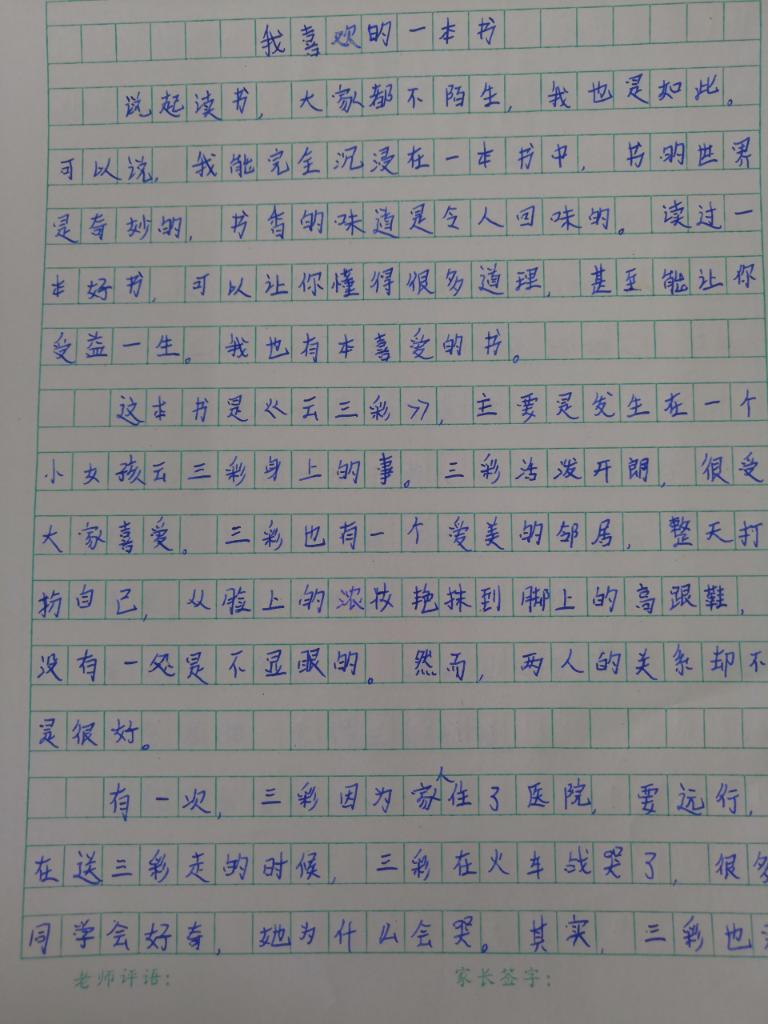 我喜欢的一本书
说起读书，大家都不陌生，我也是如此。
可以说，我能完全沉浸在一本书中，书的世界
是奇妙的，书香的味道是令人回味的。读过一
本好书，可以让你懂得很多道理，甚至能让你
受益一生。我也有本喜爱的书。
这本书是《云三彩》，主要是发生在一个
小女孩云三彩身上的事。三彩活泼开朗，很受
大家喜爱。三彩也有一个爱美的邻居，整天打
扮自己，从脸上的浓妆艳抹到脚上的高跟鞋，
没有一处是不显眼的。然而，两人的关系却不
是很好。
有一次，三彩因为家人住了医院，要远行，
在送三彩走的时候，三彩在火车战哭了，很多
同学会好奇，她为什么会哭。其实，三彩也
老师评语： 家长签字：